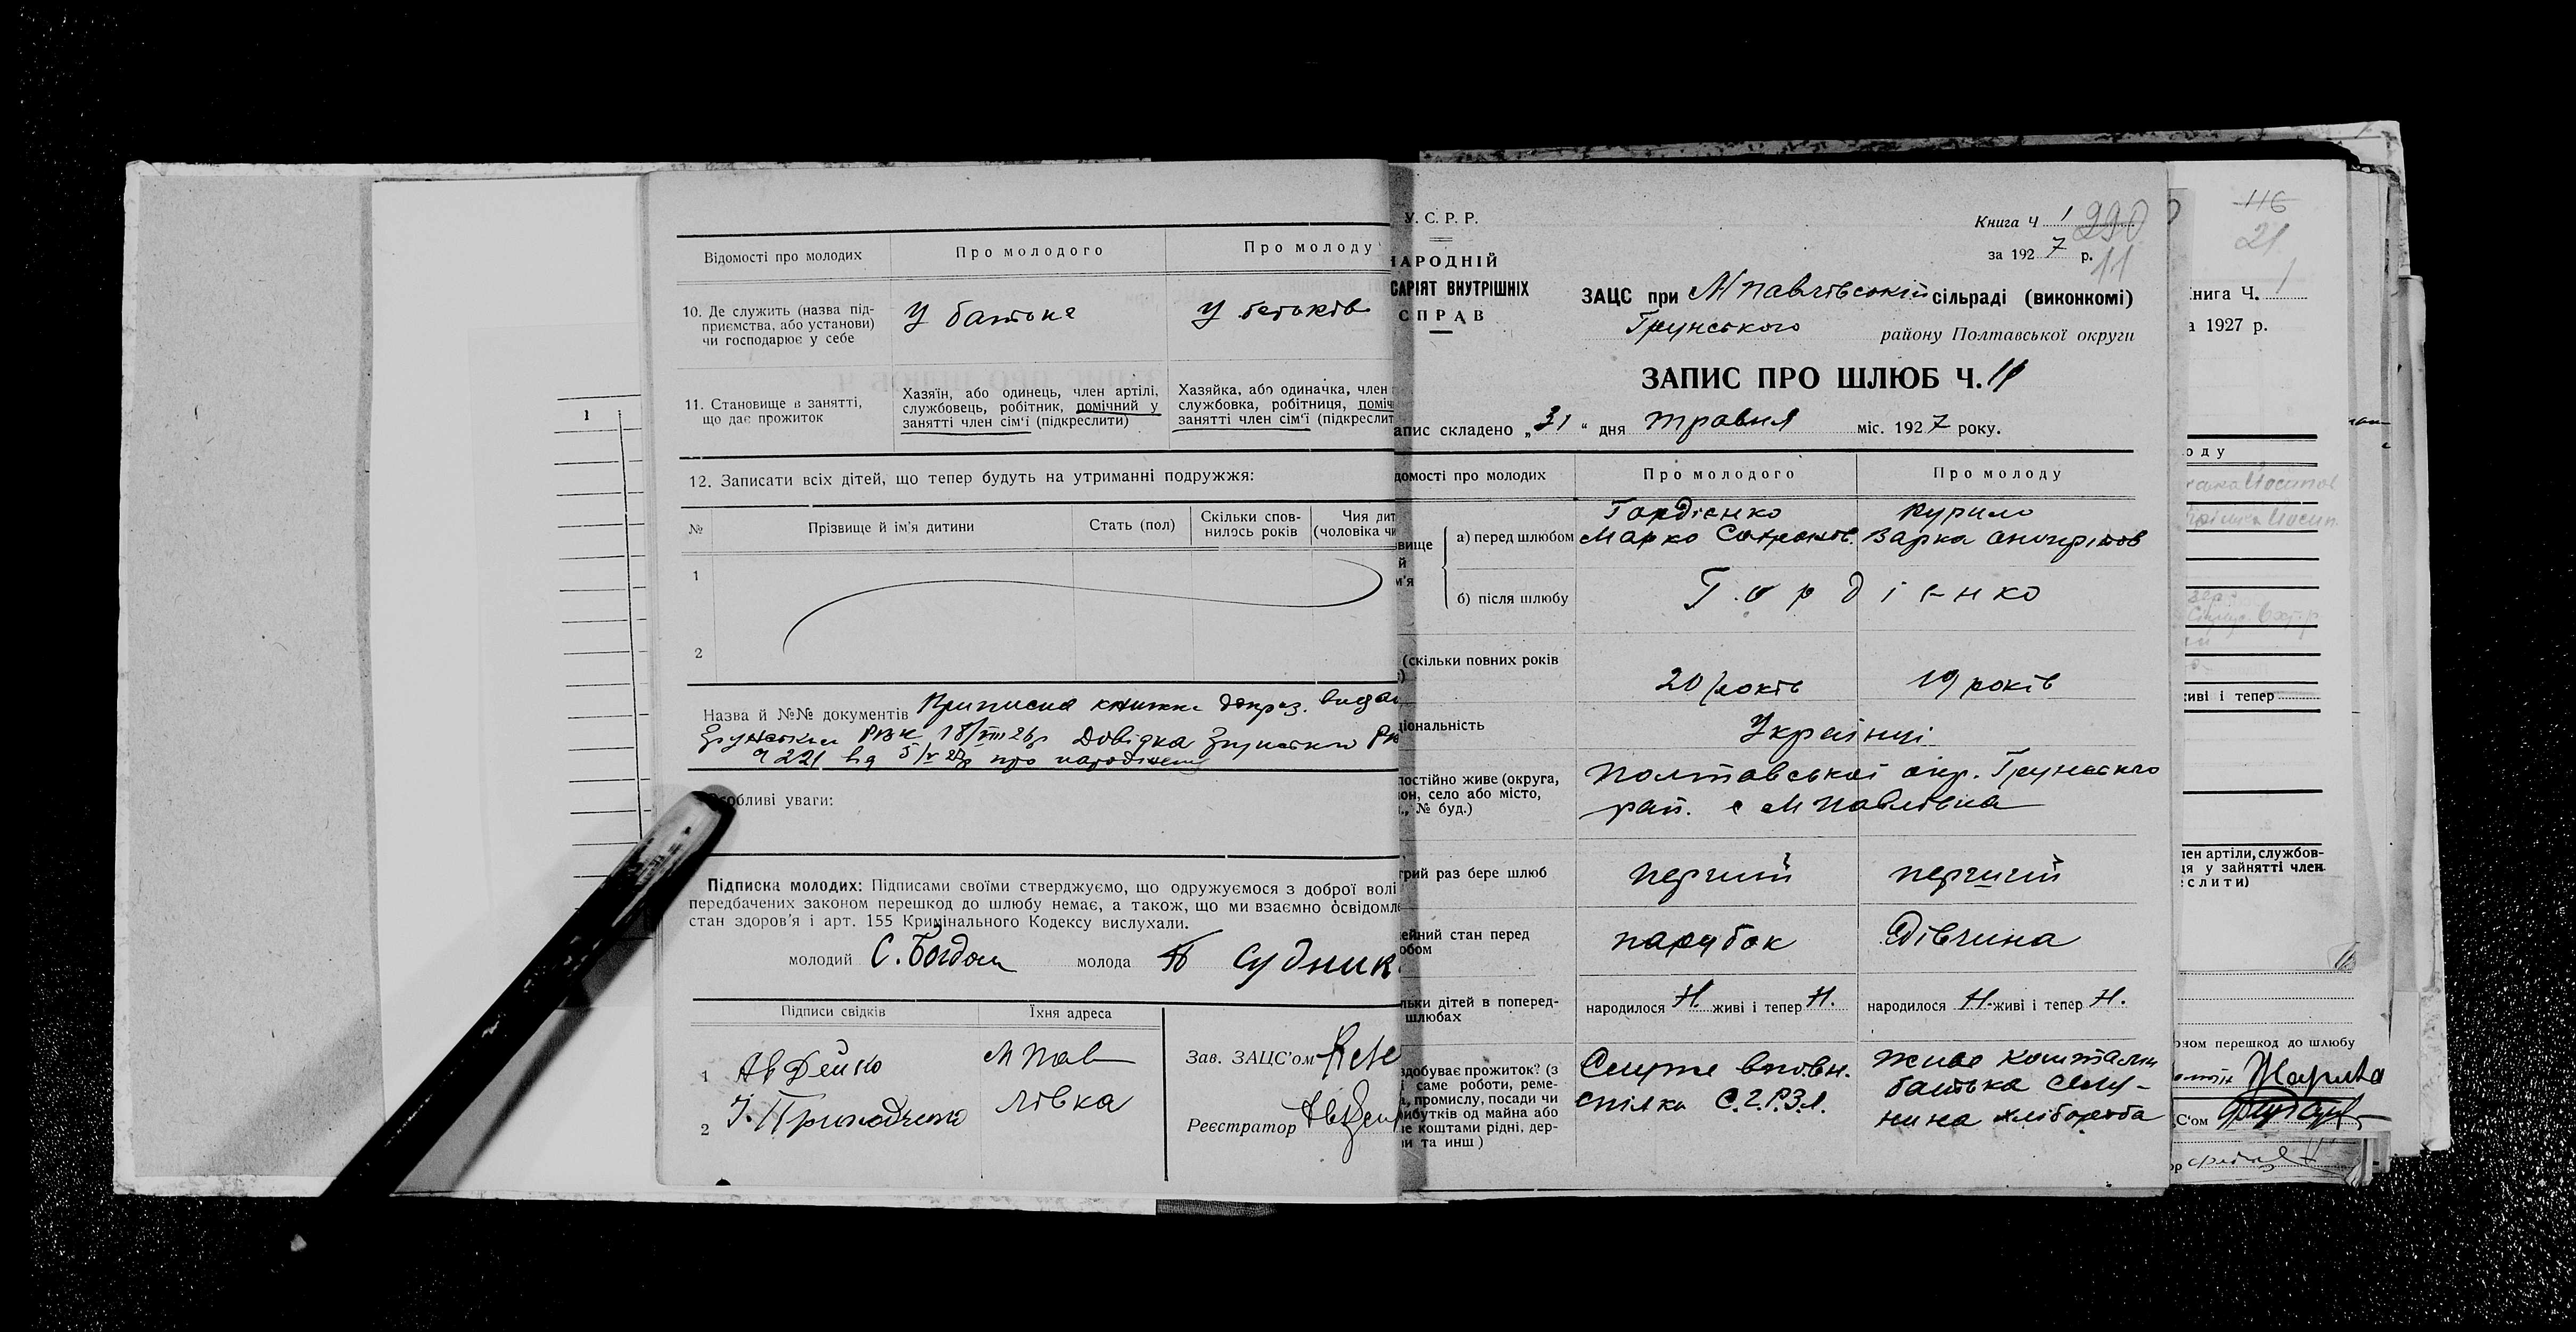 Відомості про молодих
Про молодого
Про молоду
10. Де служить (назва під-
приємства, або установи)
чи господарює у себе
У батька
У батьків
11. Становище в занятті,
що дає прожиток
Хазяїн, або одинець, член артілі,
службовець, робітник, помічний у
занятті член сім'ї (підкреслити)
Хазяйка, або одиначка, член
службовка, робітниця, поміч
занятті член сім'ї (підкреслит
12. Записати всіх дітей, що тепер будуть на утриманні подружжя:
№
Прізвище й ім'я дитини
Стать (пол)
Скільки спов-
нилось років
Чия дит
(чоловіка чи
1
2
Назва й №№ документів Приписна книжка допр. вида
18/VIII 26р Довідка
Ч 221 від 5/V 27р про народження
Особливі уваги:
Підписка молодих: Підписами своїми стверджуємо, що одружуємося з доброї волі
передбачених законом перешкод до шлюбу немає, а також, що ми взаємно освідомле
стан здоров'я і арт. 155 Кримінального Кодексу вислухали.
молодий С. Богдан молода Судник
Підписи свідків
Їхня адреса
1 Авдейко
М Пав
2 І. Приходченко
лівка
Зав. ЗАЦС'ом
Реєстратор
У. С. Р. Р.
НАРОДНІЙ
САРІЯТ ВНУТРІШНІХ
СПРАВ
Книга Ч 1
290
за 1927 р.
11
ЗАЦС при М Павлівській сільраді (виконкомі)
Грунського району Полтавської округи
ЗАПИС ПРО ШЛЮБ Ч. 11
апис складено „31“ дня травня міс. 1927 року.
домості про молодих
Про молодого
Про молоду
вище
й
м'я
а) перед шлюбом
Гордієнко
Марко Сафронов.
Курило
Варка Оноприїов
б) після шлюбу
Гордієнко
(скільки повних років
20 років
19 років
ціональність
Українці
постійно живе (округа,
он, село або місто,
., № буд.)
Полтавської окр. Грунського
рай. с М Павлівка
трий раз бере шлюб
перший
перший
ейний стан перед
юбом
парубок
дівчина
льки дітей в поперед-
шлюбах
народилося Н. живі і тепер Н.
народилося Н. живі і тепер Н.
здобуває прожиток? (з
ї саме роботи, реме-
, промислу, посади чи
ибутків од майна або
е коштами рідні, дер-
и та инш )
Служе вповн.
спілки С.Г.Р.З.Л.
живе коштами
батька селя-
нина хлібороба
116
21
нига Ч. 1
а 1927 р.
оду
иві і тепер
лен артіли, службов-
ця у зайнятті член
еслити)
ном перешкод до шлюбу
С'ом
1